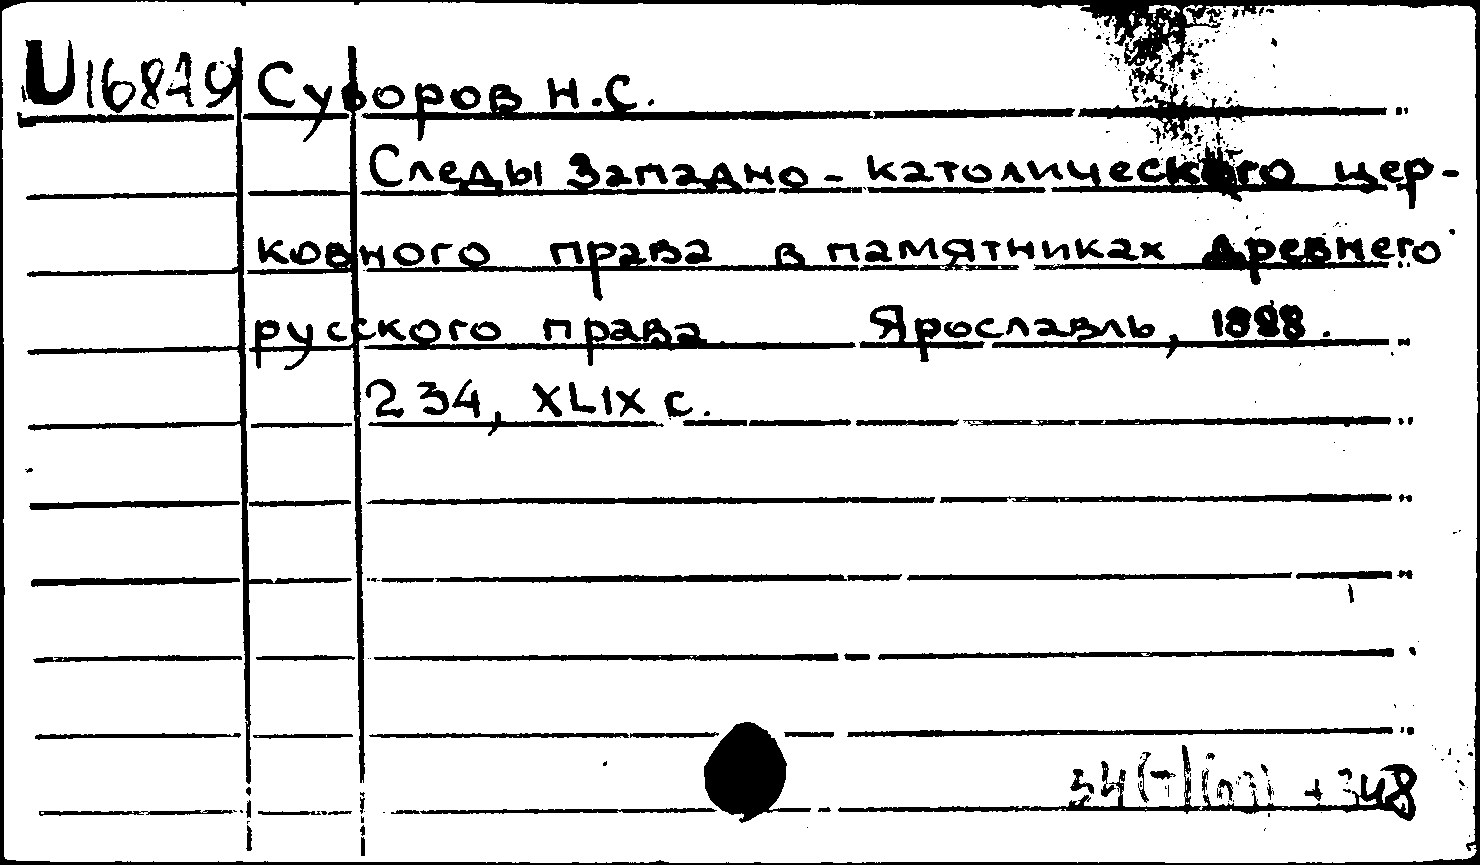 U16849 Суворов Н.С.
Следы Западно-католического цер-
ковного права в памятниках древнего
русского права Ярославль, 1888.
234, XLIX с.
+348